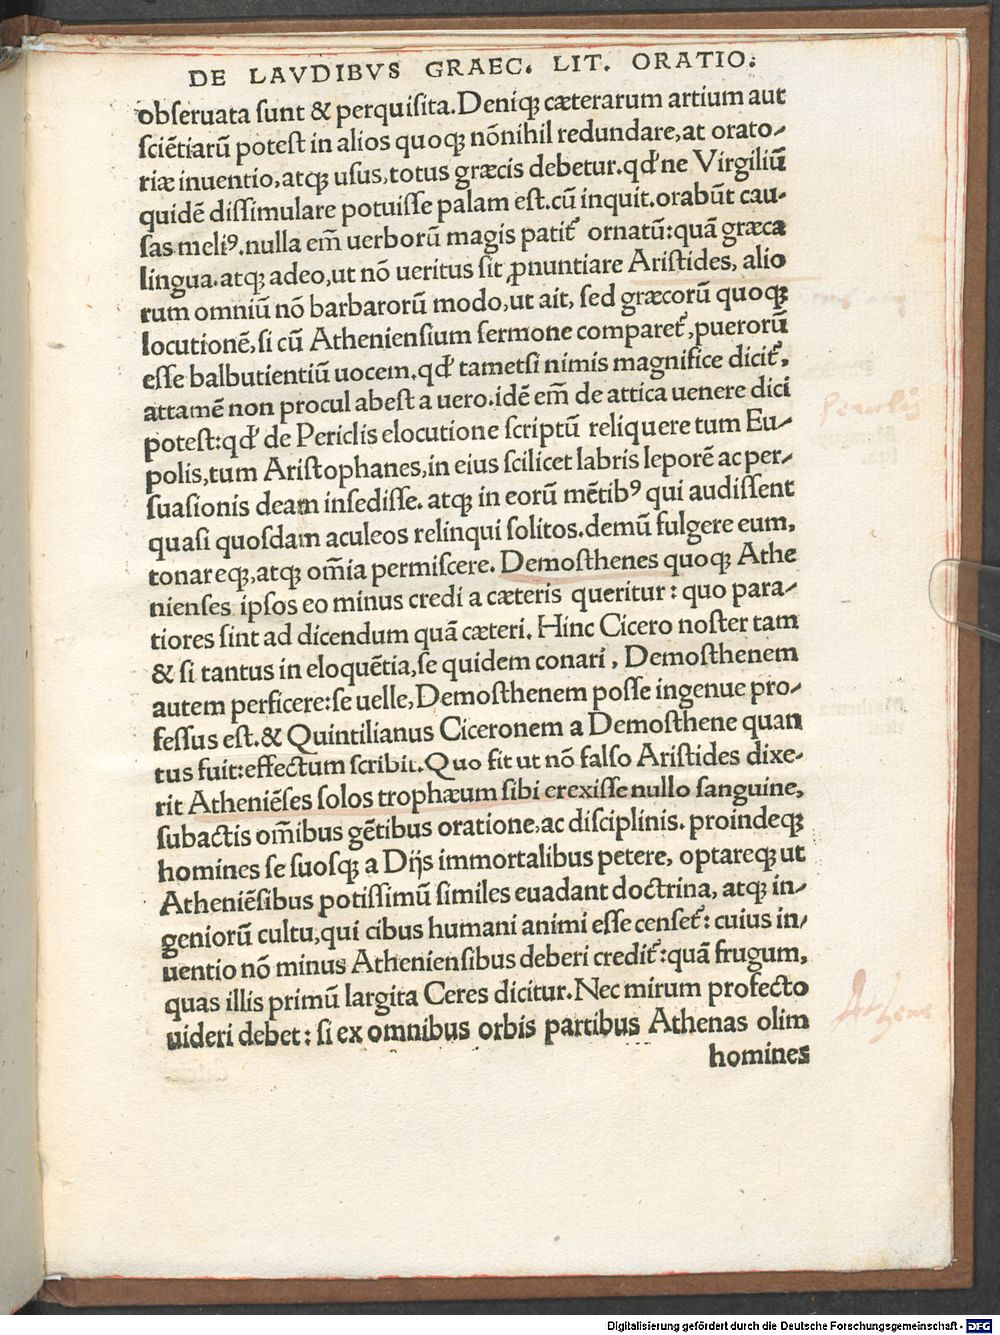 DE LAVDIBVS GRAEC. LIT. ORATIO.
obseruata sunt & perquisita. Deniqꝫ cæterarum artium aut
sciẽtiarũ potest in alios quoqꝫ nõnihil redundare, at orato-
riæ inuentio, atqꝫ usus, totus græcis debetur. qđ ne Virgiliũ
quidẽ dissimulare potuisse palam est. cũ inquit. orabũt cau-
sas meliꝰ. nulla em̃ uerborũ magis patit᷑ ornatũ: quã græca
lingua. atqꝫ adeo, ut nõ ueritus sit ꝓnuntiare Aristides, alio
rum omniũ nõ barbarorũ modo, ut ait, sed græcorũ quoqꝫ
locutionẽ, si cũ Atheniensium sermone comparet᷑, puerorũ
esse balbutientiũ uocem. qđ tametsi nimis magnifice dicit᷑,
attamẽ non procul abest a uero. idẽ em̃ de attica uenere dici
potest: qđ de Periclis elocutione scriptũ reliquere tum Eu-
polis, tum Aristophanes, in eius scilicet labris leporẽ ac per-
suasionis deam insedisse. atqꝫ in eorũ mẽtibꝰ qui audissent
quasi quosdam aculeos relinqui solitos. demũ fulgere eum,
tonareqꝫ, atqꝫ om̃ia permiscere. Demosthenes quoqꝫ Athe
nienses ipsos eo minus credi a cæteris queritur: quo para-
tiores sint ad dicendum quã cæteri. Hinc Cicero noster tam
& si tantus in eloquẽtia, se quidem conari, Demosthenem
autem perficere: se uelle, Demosthenem posse ingenue pro-
fessus est. & Quintilianus Ciceronem a Demosthene quan
tus fuit: effectum scribit. Quo fit ut nõ falso Aristides dixe-
rit Atheniẽses solos trophæum sibi erexisse nullo sanguine,
subactis om̃ibus gẽtibus oratione, ac disciplinis. proindeqꝫ
homines se suosqꝫ a Dijs immortalibus petere, optareqꝫ ut
Atheniẽsibus potissimũ similes euadant doctrina, atqꝫ in-
geniorũ cultu, qui cibus humani animi esse censet᷑: cuius in-
uentio nõ minus Atheniensibus deberi credit᷑: quã frugum,
quas illis primũ largita Ceres dicitur. Nec mirum profecto
uideri debet: si ex omnibus orbis partibus Athenas olim
homines
Periclis
Athene
Digitalisierung gefördert durch die Deutsche Forschungsgemeinschaft - DFG